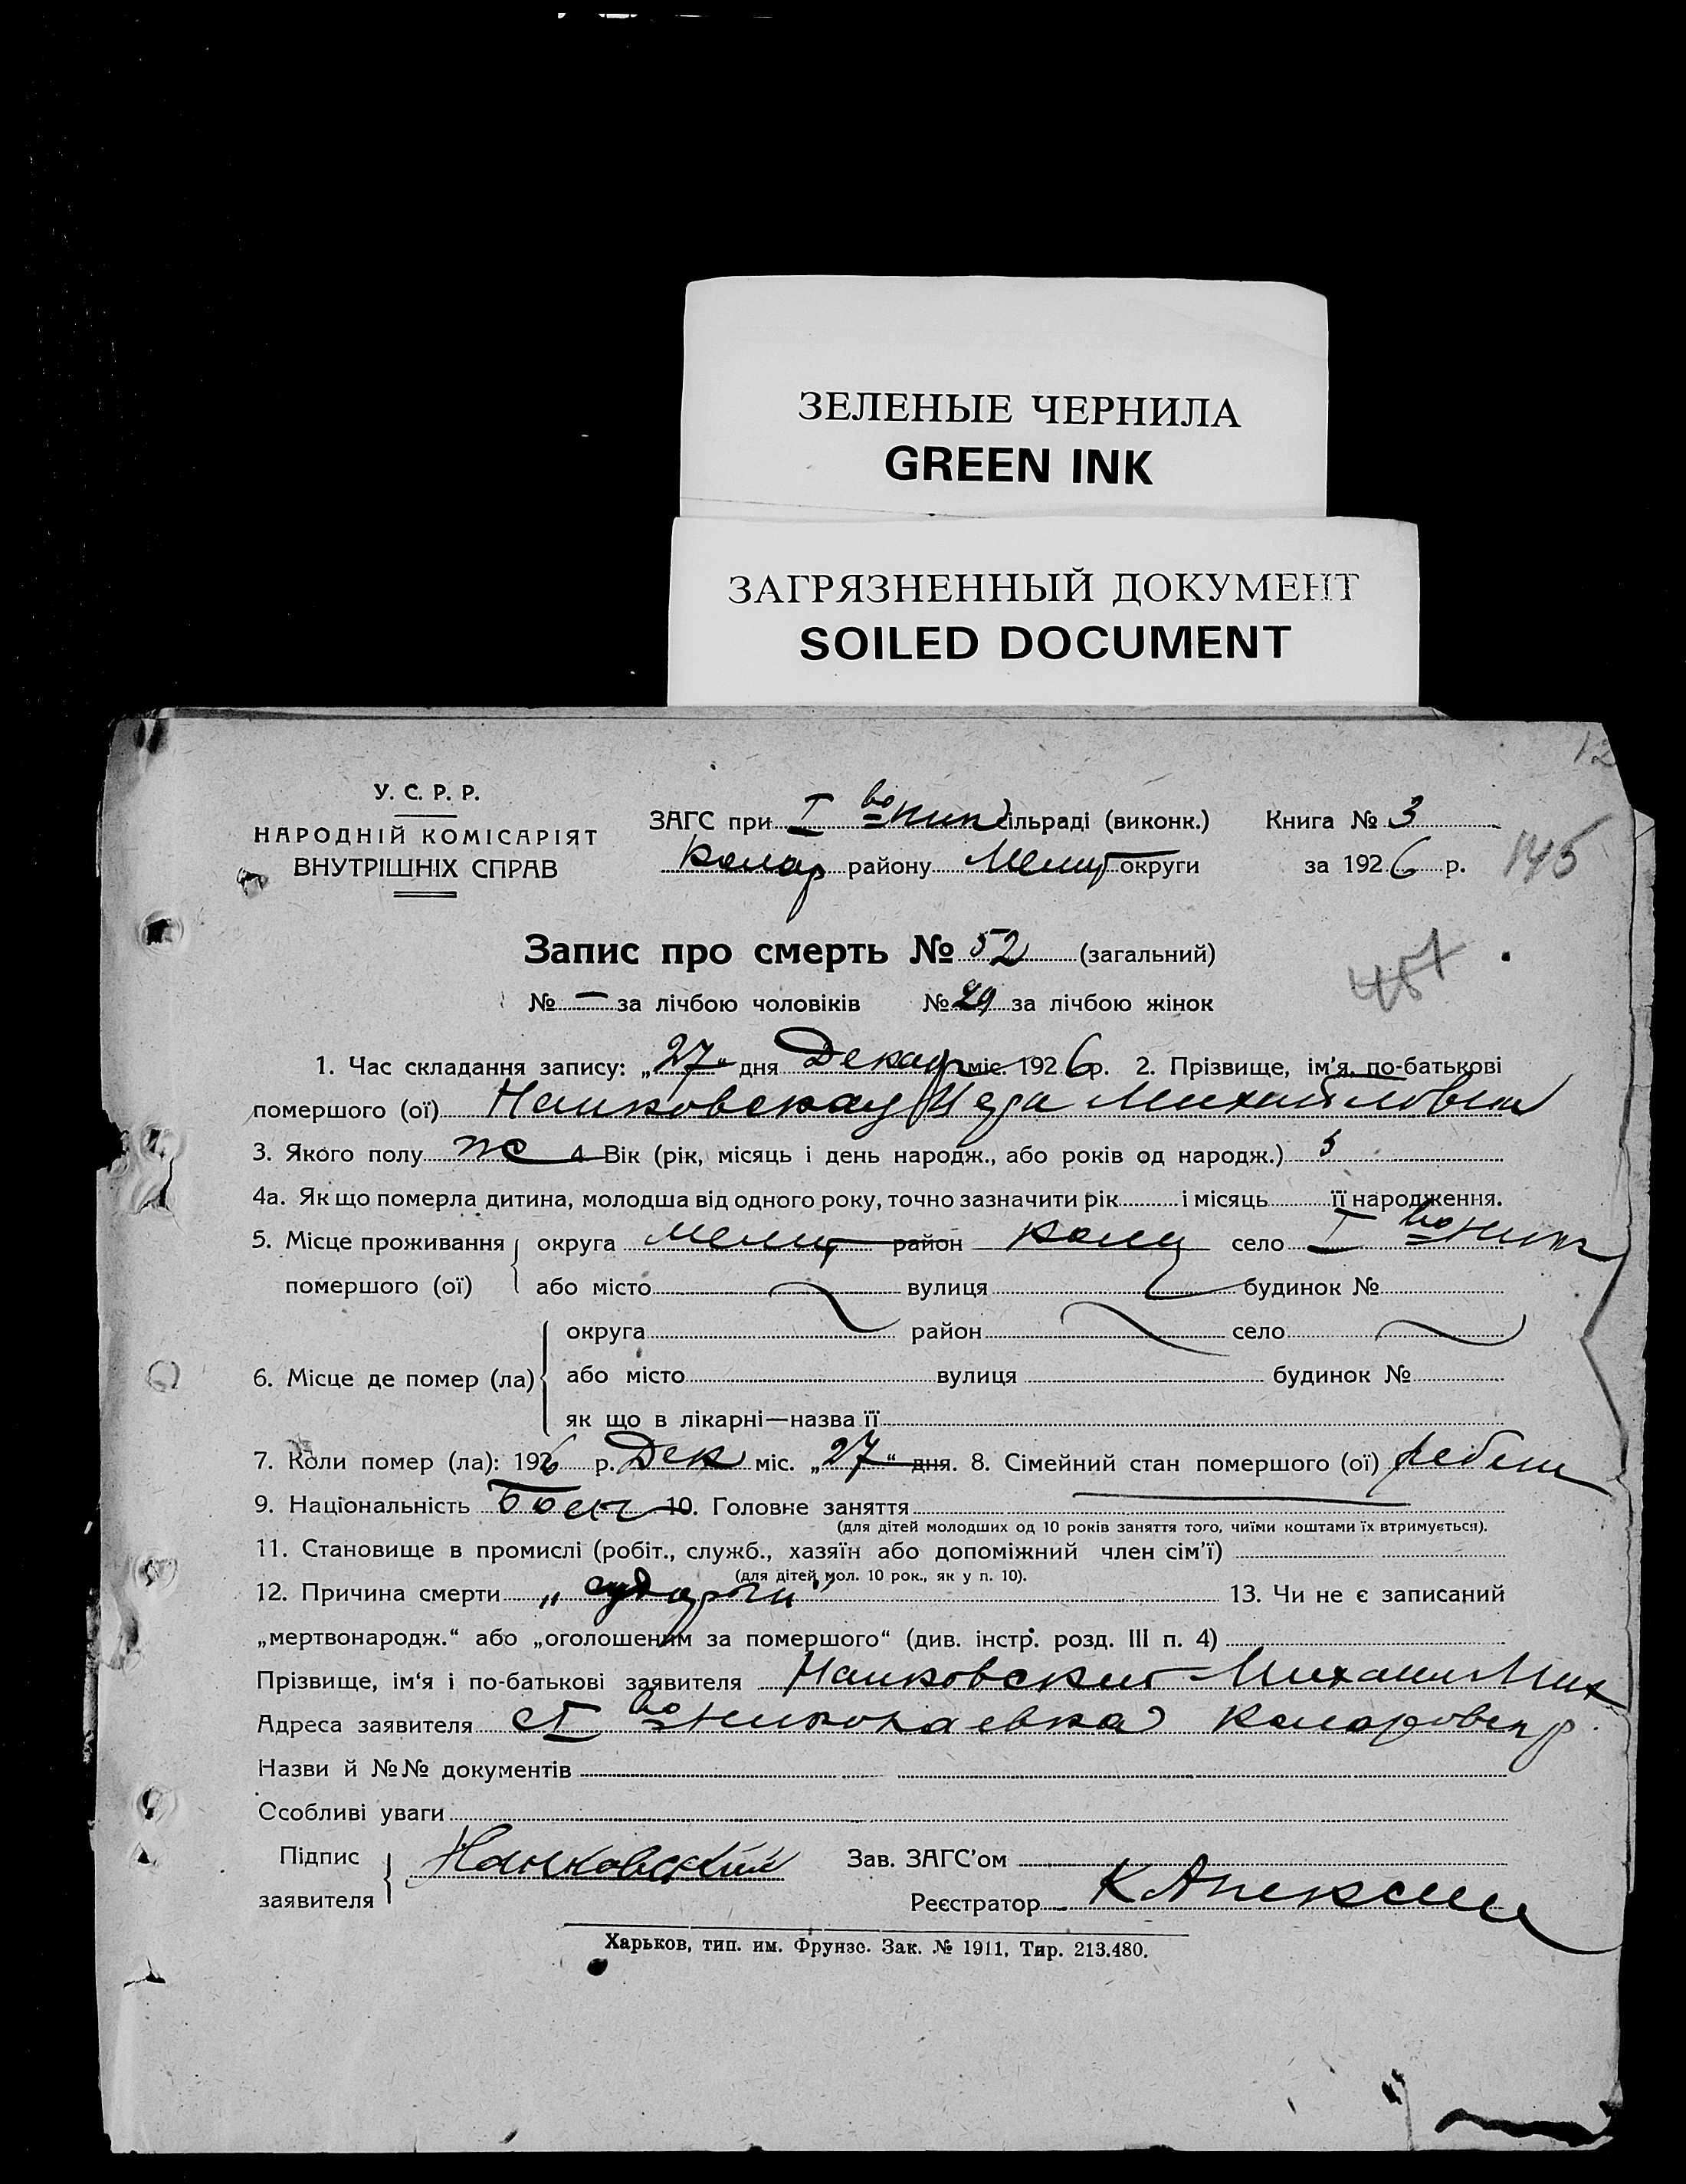 ЗЕЛЕНЫЕ ЧЕРНИЛА
GREEN INK
ЗАГРЯЗНЕННЫЙ ДОКУМЕНТ
SOILED DOCUMENT
12
У. С. Р. Р.
НАРОДНІЙ КОМІСАРІЯТ
ВНУТРІШНІХ СПРАВ
ЗАГС при I во Ник сільраді (виконк.) Книга № 3
Колар району Мелит округи за 1926 р.
145
Запис про смерть № 52 (загальний)
457
№ — за лічбою чоловіків № 29 за лічбою жінок
1. Час складання запису: „27“ дня Декабр міс. 1926 р. 2. Прізвище, ім'я, по-батькові
помершого (ої) Михайловна
3. Якого полу ж 4. Вік (рік, місяць і день народж., або років од народж.) 5
4а. Як що померла дитина, молодша від одного року, точно зазначити рік і місяць її народження.
5. Місце проживання округа Мелит район село I во Ник
помершого (ої) або місто вулиця будинок №
округа район село
6. Місце де помер (ла) або місто вулиця будинок №
як що в лікарні—назва її
7. Коли помер (ла): 1926 р. Дек міс. „27“ дня. 8. Сімейний стан помершого (ої) ребен
9. Національність Болг 10. Головне заняття
(для дітей молодших од 10 років заняття того, чиїми коштами їх втримується).
11. Становище в промислі (робіт., служб., хазяїн або допоміжний член сім'ї)
(для дітей мол. 10 рок., як у п. 10).
12. Причина смерти „судороги“ 13. Чи не є записаний
„мертвонародж.“ або „оголошеним за помершого“ (див. інстр. розд. III п. 4)
Прізвище, ім'я і по-батькові заявителя Михаил Мих
Адреса заявителя с I во Николаевка Коларовск р
Назви й №№ документів
Особливі уваги
Підпис
заявителя
Зав. ЗАГС'ом
Реєстратор
Харьков, тип. им. Фрунзе. Зак. № 1911, Тир. 213.480.